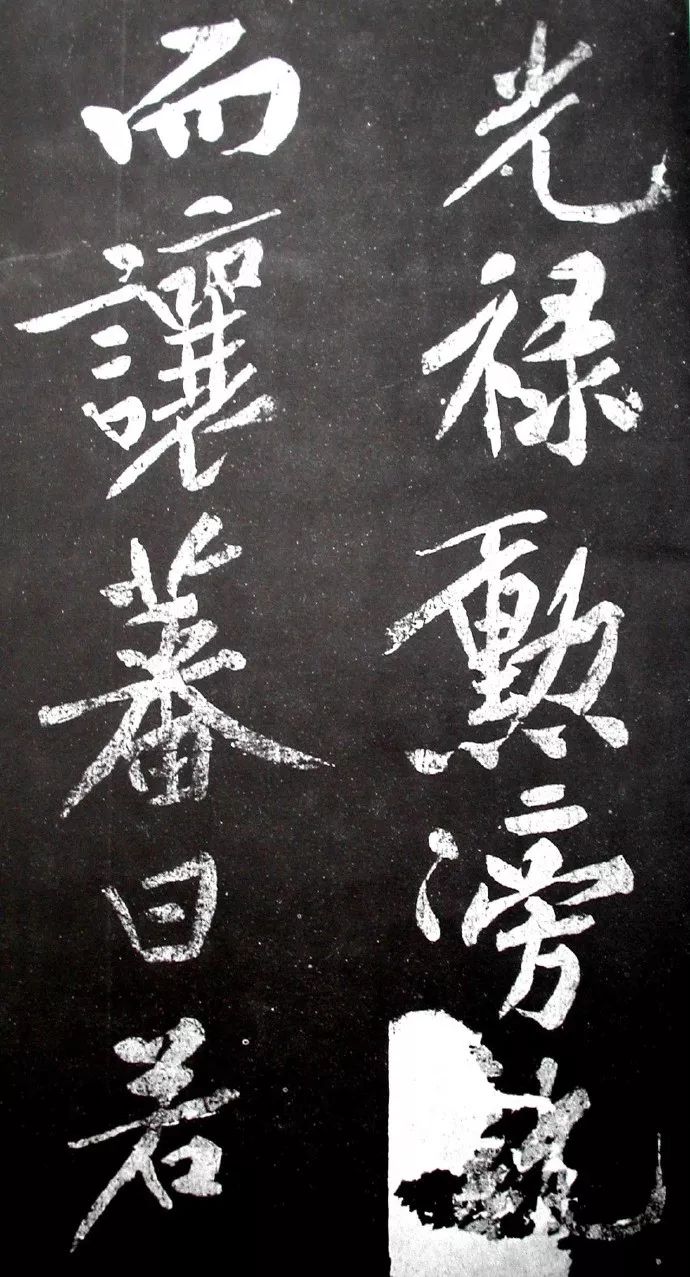 光禄勲滂
而讓蕃曰若